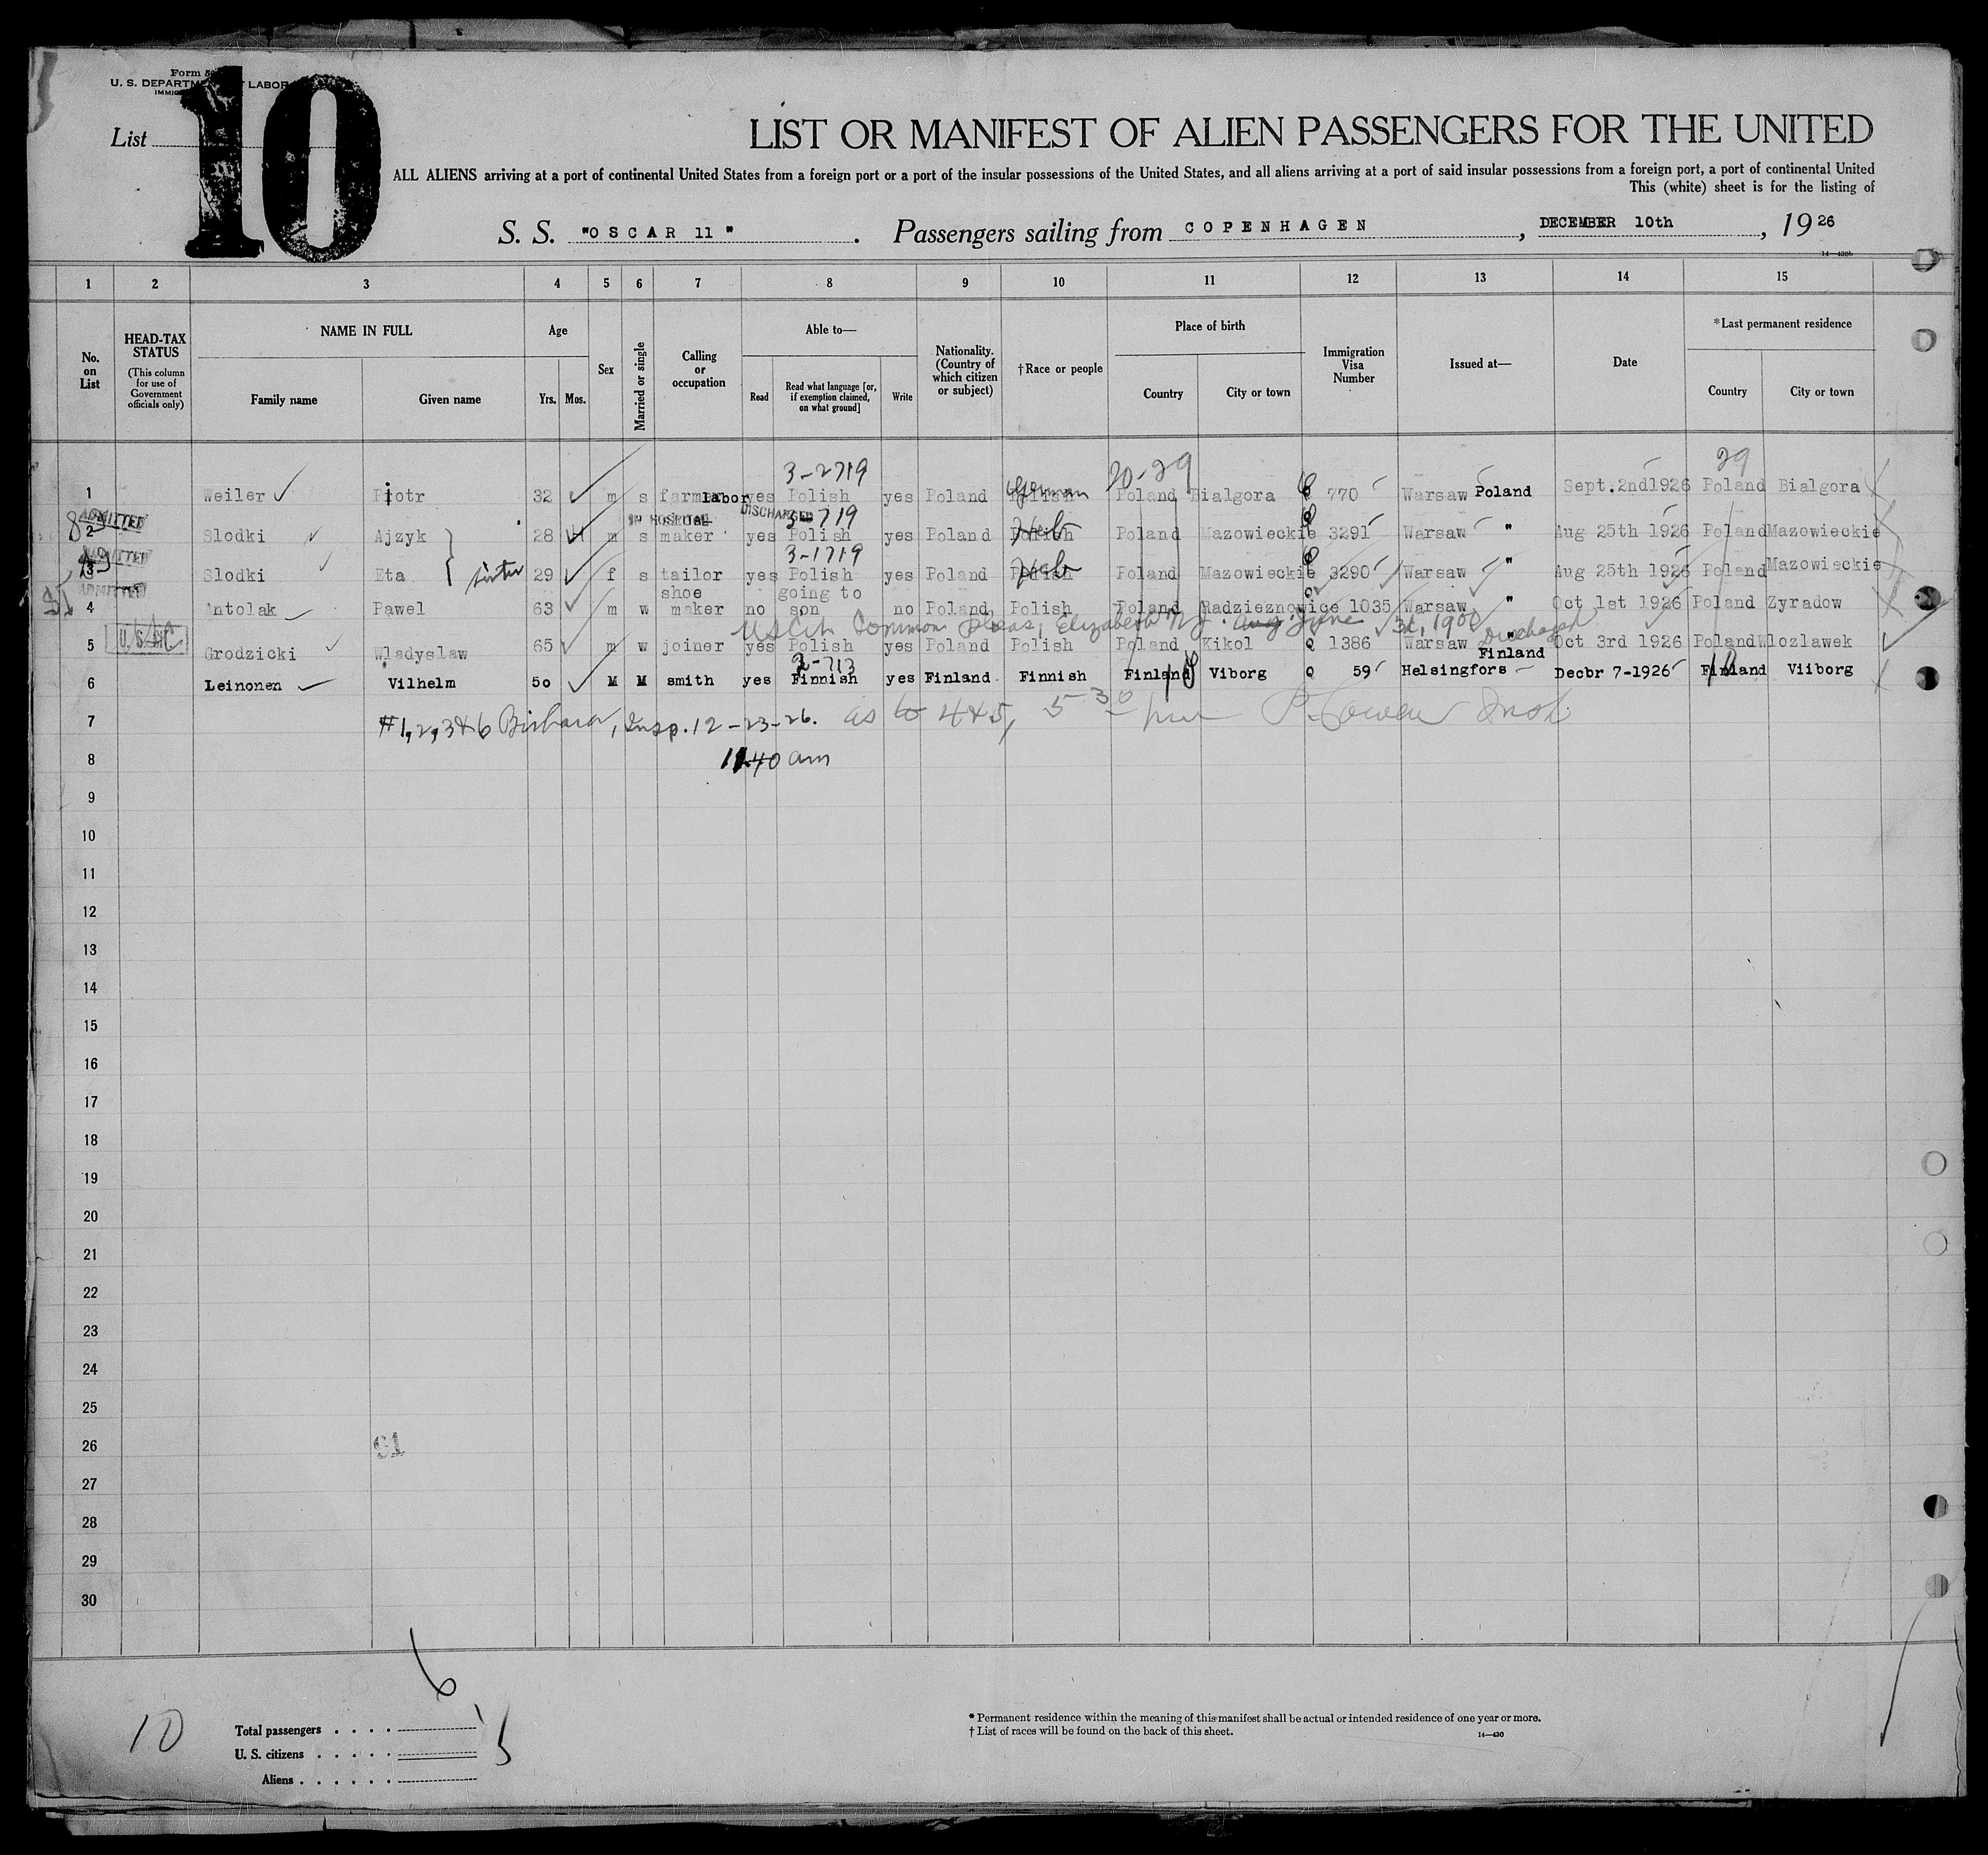 Form
U. S. DEPARTMENT LABOR
10
List
LIST OR MANIFEST OF ALIEN PASSENGERS FOR THE UNITED
ALL ALIENS arriving at a port of continental United States from a foreign port or a port of the insular possessions of the United States, and all aliens arriving at a port of said insular possessions from a foreign port, a port of continental United
This (white) sheet is for the listing of
S. S. "OSCAR 11" . Passengers sailing from COPENHAGEN , DECEMBER 10th , 19 26
1 2 3 4 5 6 7 8 9 10 11 12 13 14 15
No. on List
HEAD-TAX STATUS
(This column for use of Government officials only)
NAME IN FULL
Family name Given name
Age
Yrs. Mos.
Sex
Married or single
Calling or occupation
Able to—
Read Read what language [or, if exemption claimed, on what ground] Write
Nationality. (Country of which citizen or subject)
†Race or people
Place of birth
Country City or town
Immigration Visa Number
Issued at—
Date
*Last permanent residence
Country City or town
3-2719 20-29 29
1 Weiler Piotr 32 m s farmer Labor yes Polish yes Poland German Poland Bialgora 770 Warsaw Poland Sept.2nd1926 Poland Bialgora
ADMITTED IN HOSPITAL DISCHARGED 3-719
2 Slodki Ajzyk 28 m s maker yes Polish yes Poland Heb Poland Mazowieckie 3291 Warsaw " Aug 25th 1926 Poland Mazowieckie
ADMITTED 3-1719
3 Slodki Eta sister 29 f s tailor yes Polish yes Poland Heb Poland Mazowieckie 3290 Warsaw " Aug 25th 1926 Poland Mazowieckie
ADMITTED shoe going to
4 Antolak Pawel 63 m w maker no son no Poland Polish Poland Radzieznowice 1035 Warsaw " Oct 1st 1926 Poland Zyradow
US Cit Common Pleas, Elizabeth N.J. Aug June 1900 Discharged
5 Grodzicki Wladyslaw 65 m w joiner yes Polish yes Poland Polish Poland Kikol 1386 Warsaw " Oct 3rd 1926 Poland Wlozlawek
2-713 Finland
6 Leinonen Vilhelm 50 M M smith yes Finnish yes Finland Finnish Finland Viborg 59 Helsingfors Decbr 7-1926 Finland Viiborg
7 #1,2,3&6 Insp. 12-23-26. as to 4&5, 5 30 pm Insp.
8 11.40 am
9
10
11
12
13
14
15
16
17
18
19
20
21
22
23
24
25
26 91
27
28
29
30
6
10
Total passengers
U. S. citizens
Aliens
* Permanent residence within the meaning of this manifest shall be actual or intended residence of one year or more.
† List of races will be found on the back of this sheet.
14—430